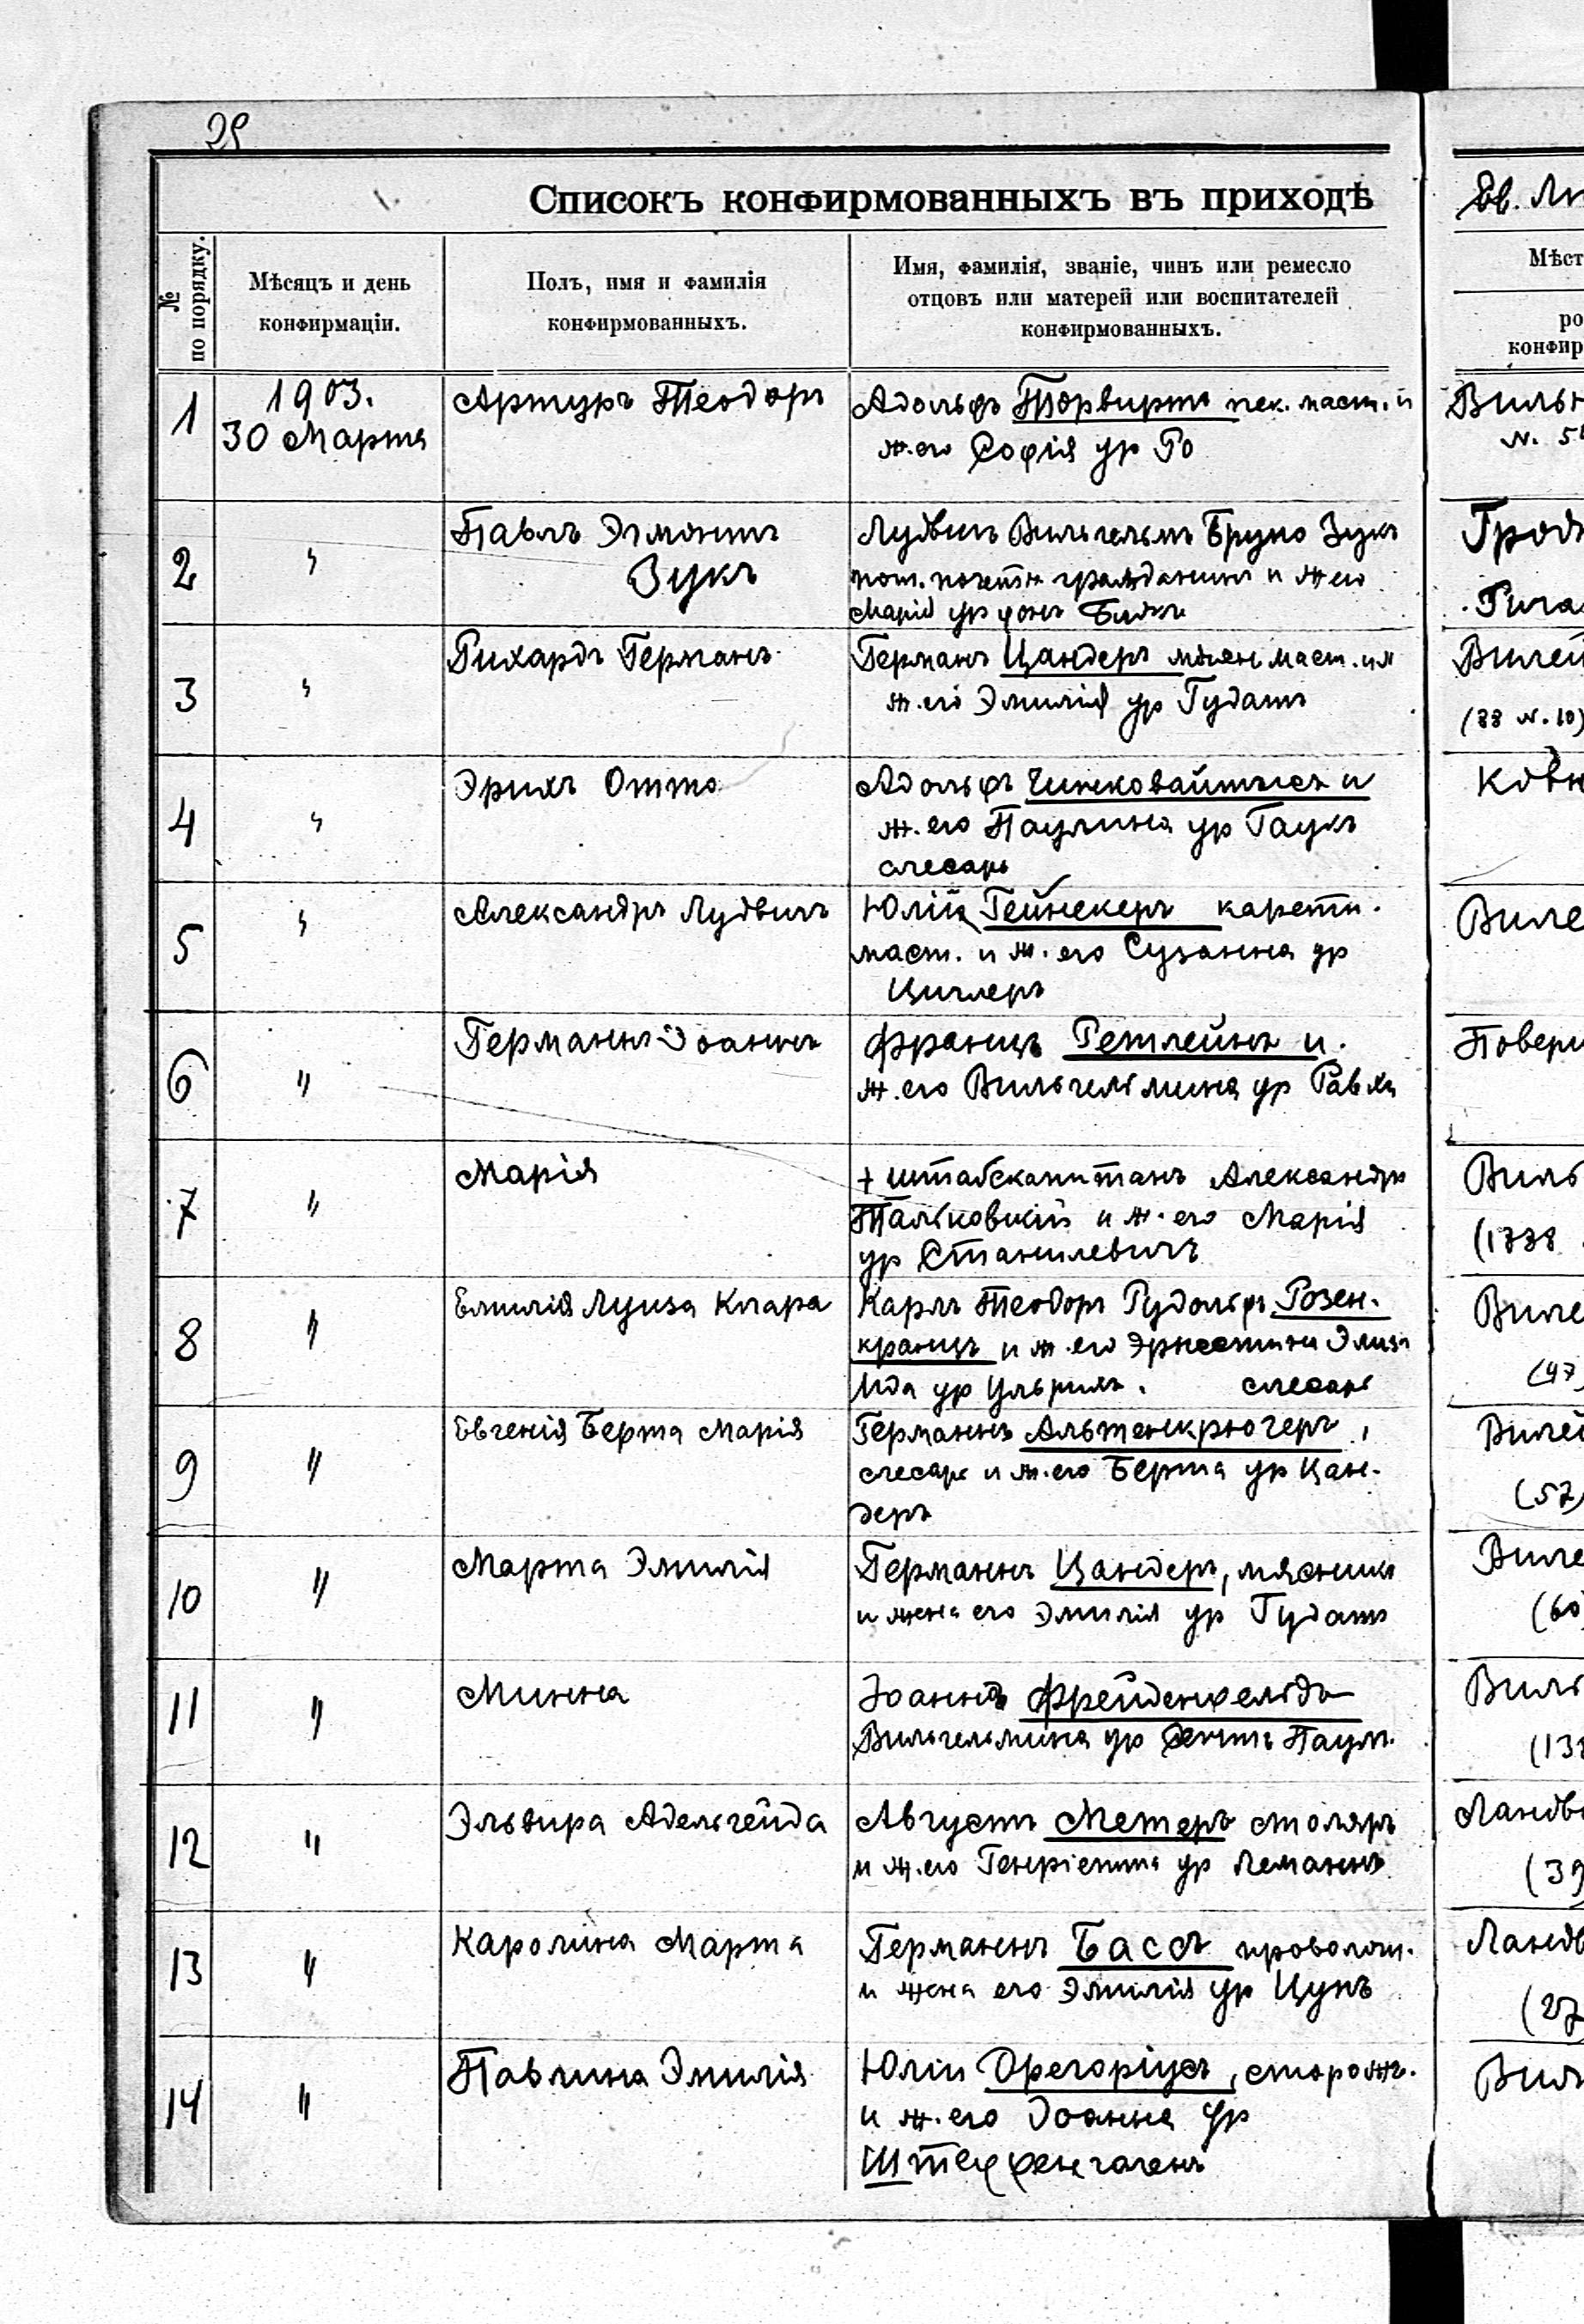 29
Списокъ конфирмованныхъ въ приходѣ
№ по порядку.
Мѣсяцъ и день конфирмаціи.
Полъ, имя и фамилія конфирмованныхъ.
Имя, фамилія, званіе, чинъ или ремесло
отцовъ или матерей или воспитателей
конфирмованныхъ.
Ев. Лю
Мѣст
ро
конфир
1
1903.
30 Марта
Артуръ Теодоръ
Адольфъ Торвиртъ пек. маст. и
ж. его Софія ур Ро
Вильн
N. 5
2
"
Павлъ Эгмонтъ
Зукъ
Лудвигъ Вильгельмъ Бруно Зукъ
пот. почетн гражданинъ и ж его
Марія ур фонъ
Грод
Рига
3
"
Рихардъ Германъ
Германъ Цандеръ маст. и
ж. его Эмилія ур Гудатъ
Вилей
(88 N. 10)
4
"
Эрихъ Отто
Адольфъ Чинковайтысъ и
ж. его Паулина ур Гаукъ
слесарь
Ковн
5
"
Александръ Лудвигъ
Юлій Гейнекеръ каретн.
маст. и ж. его Сузанна ур
Циглеръ
Виле
6
"
Германнъ Іоаннъ
Францъ Ретлейнъ и
ж. его Вильгельмина ур
Повери
7
"
Марія
+ штабскапитанъ Александръ
Тальковскій и ж. его Марія
ур Станилевичъ
Виль
(1738
8
"
Емилія Луиза Клара
Карлъ Теодоръ Рудольфъ Розен-
кранцъ и ж. его Эрнестина Элиза
Ида ур Ульрихъ. слесарь
Виле
(47)
9
"
Евгенія Берта Марія
Германнъ Альтенкрюгеръ,
слесарь и ж. его Берта ур Цан-
деръ
Вилей
(57)
10
"
Марта Эмилія
Германнъ Цандеръ, мясникъ
и жена его Эмилія ур Гудатъ
Виле
(60)
11
"
Минна
Іоаннъ Фрейденфельдъ
Вильгельмина ур Паулъ
Виль
(138
12
"
Эльвира Адельгейда
Августъ Метеръ столяръ
и ж. его Генріетта ур Леманнъ
Ландв
(39
13
"
Каролина Марта
Германнъ Бассъ проволоч.
и жена его Эмилія ур Цупъ
Ландв
(27
14
"
Павлина Эмилія
Юлій Орегоріусъ, сторожъ.
и ж. его Іоанна ур
Штефенгагенъ
Вил